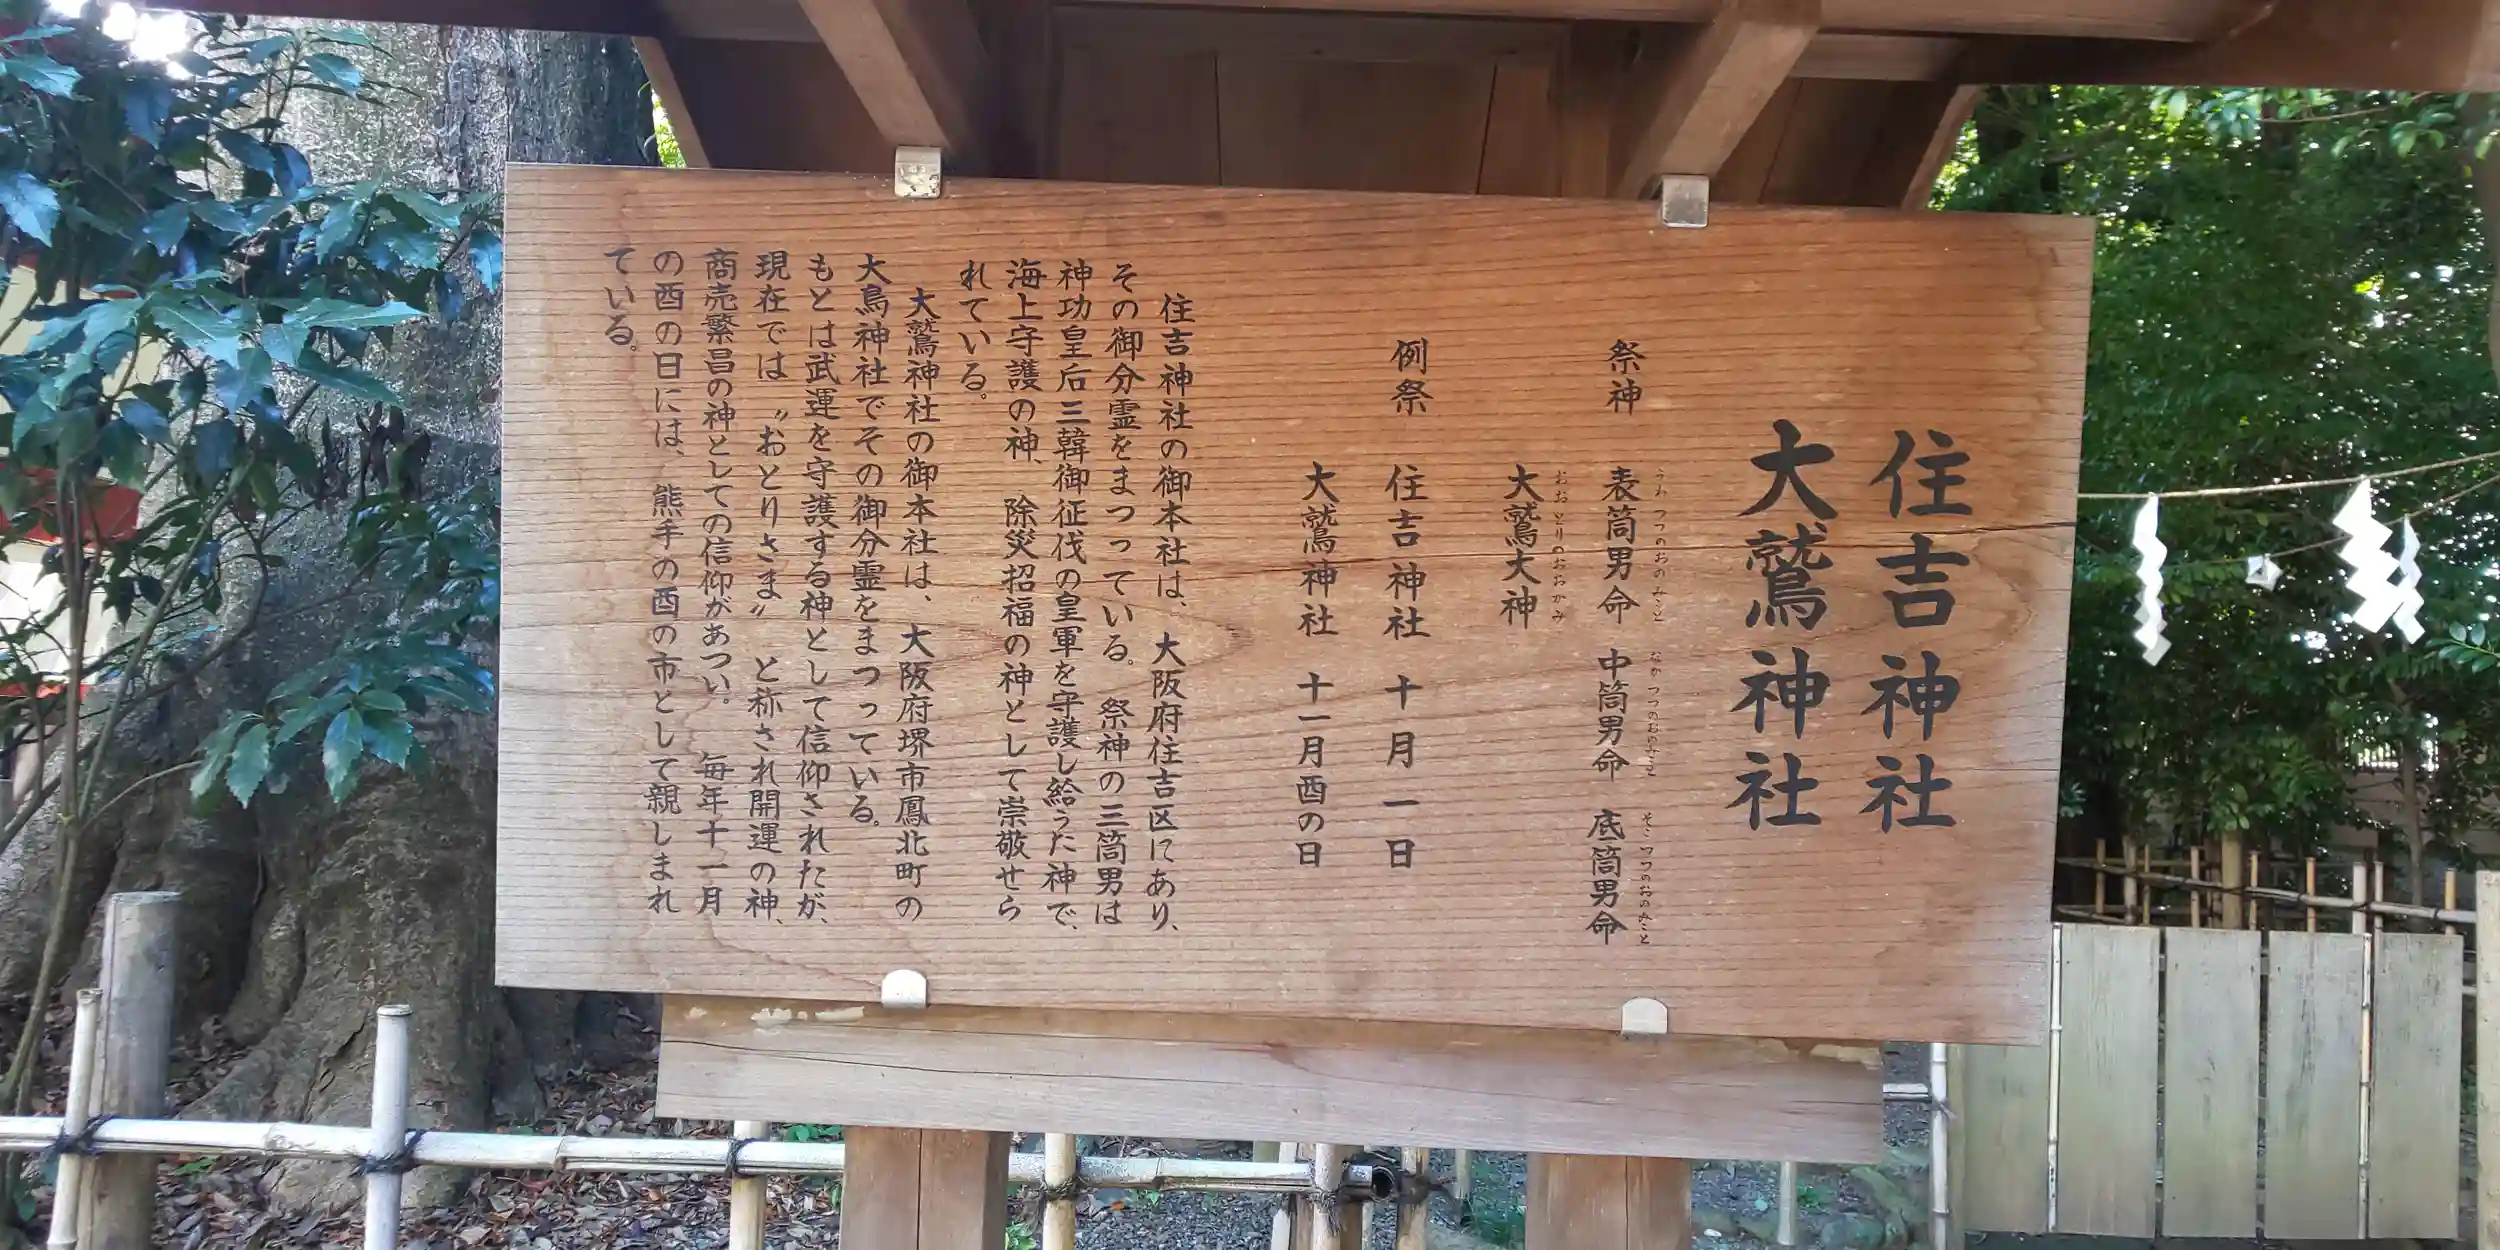 住吉神社
大鷲神社
祭神 表筒男命 中筒男命 底筒男命
うわつつのおのみこと なかつつのおのみこと そこつつのおのみこと
大鷲大神
おおとりのおおかみ
例祭 住吉神社 十月一日
大鷲神社 十一月酉の日
住吉神社の御本社は、大阪府住吉区にあり、
その御分霊をまつっている。祭神の三筒男は
神功皇后三韓御征伐の皇軍を守護し給うた神で、
海上守護の神、除災招福の神として崇敬せら
れている。
大鷲神社の御本社は、大阪府堺市鳳北町の
大鳥神社でその御分霊をまつっている。
もとは武運を守護する神として信仰されたが、
現在では〝おとりさま〟と称され開運の神、
商売繁昌の神としての信仰があつい。毎年十一月
の酉の日には、熊手の酉の市として親しまれ
ている。